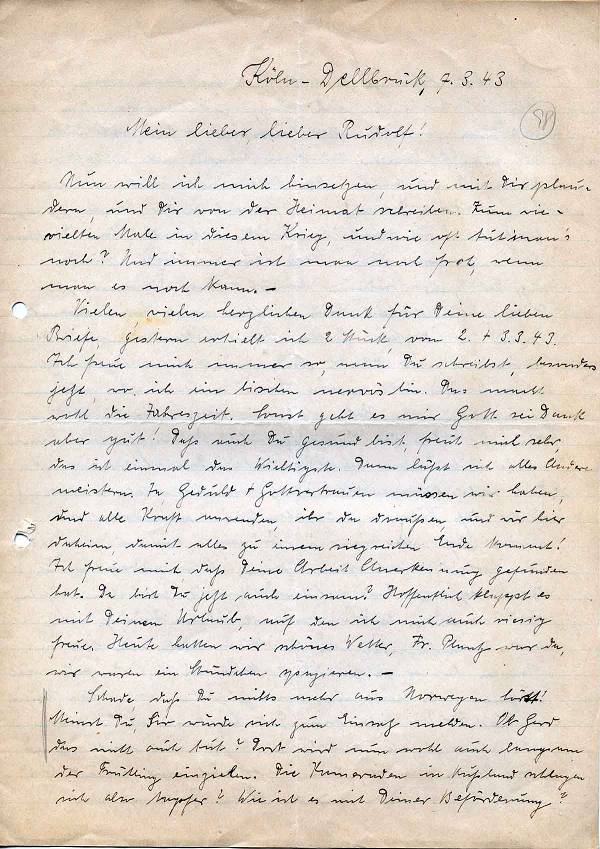 Köln - Dellbrück, 7.3.43
Mein lieber, lieber Rudolf!
Nun will ich mich hinsetzen, und mit Dir plau-
dern, und Dir von der Heimat schreiben. Zum wie-
vielten Male in diesem Krieg, und wie oft tut man's
noch? Und immer ist man noch froh, wenn
man es noch kann. -
Vielen, vielen herzlichen Dank für Deine lieben
Briefe, gestern erhielt ich 2 Stück, vom 2. + 3.3.43.
Ich freue mich immer so, wenn Du schreibst, besonders
jetzt, wo ich ein bischen nervös bin. Das macht
wohl die Jahreszeit. Sonst geht es mir Gott sei Dank
aber gut! Daß auch Du gesund bist, freut mich sehr,
das ist einmal das Wichtigste. Dann läßt sich alles Andere
meistern. Ja Geduld + Gottvertrauen müssen wir haben,
und alle Kraft anwenden, ihr da draußen, und wir hier
daheim, damit alles zu einem siegreichen Ende kommt!
Ich freue mich, daß Deine Arbeit Anerkennung gefunden
hat. Da bist Du jetzt auch einsam? Hoffentlich klappt es
mit Deinem Urlaub, auf den ich mich auch riesig
freue. Heute hatten wir schönes Wetter, Fr. war da,
wir waren ein Stündchen spazieren. -
Schade, daß Du nichts mehr aus Norwegen hörst!
Meinst Du, würde sich zum Einsatz melden. Ob Gerd
das nicht auch tut? Dort wird nun wohl auch langsam
der Frühling einziehen. Die Kameraden in Rußland schlagen
sich aber tapfer! Wie ist es mit Deiner Beförderung?